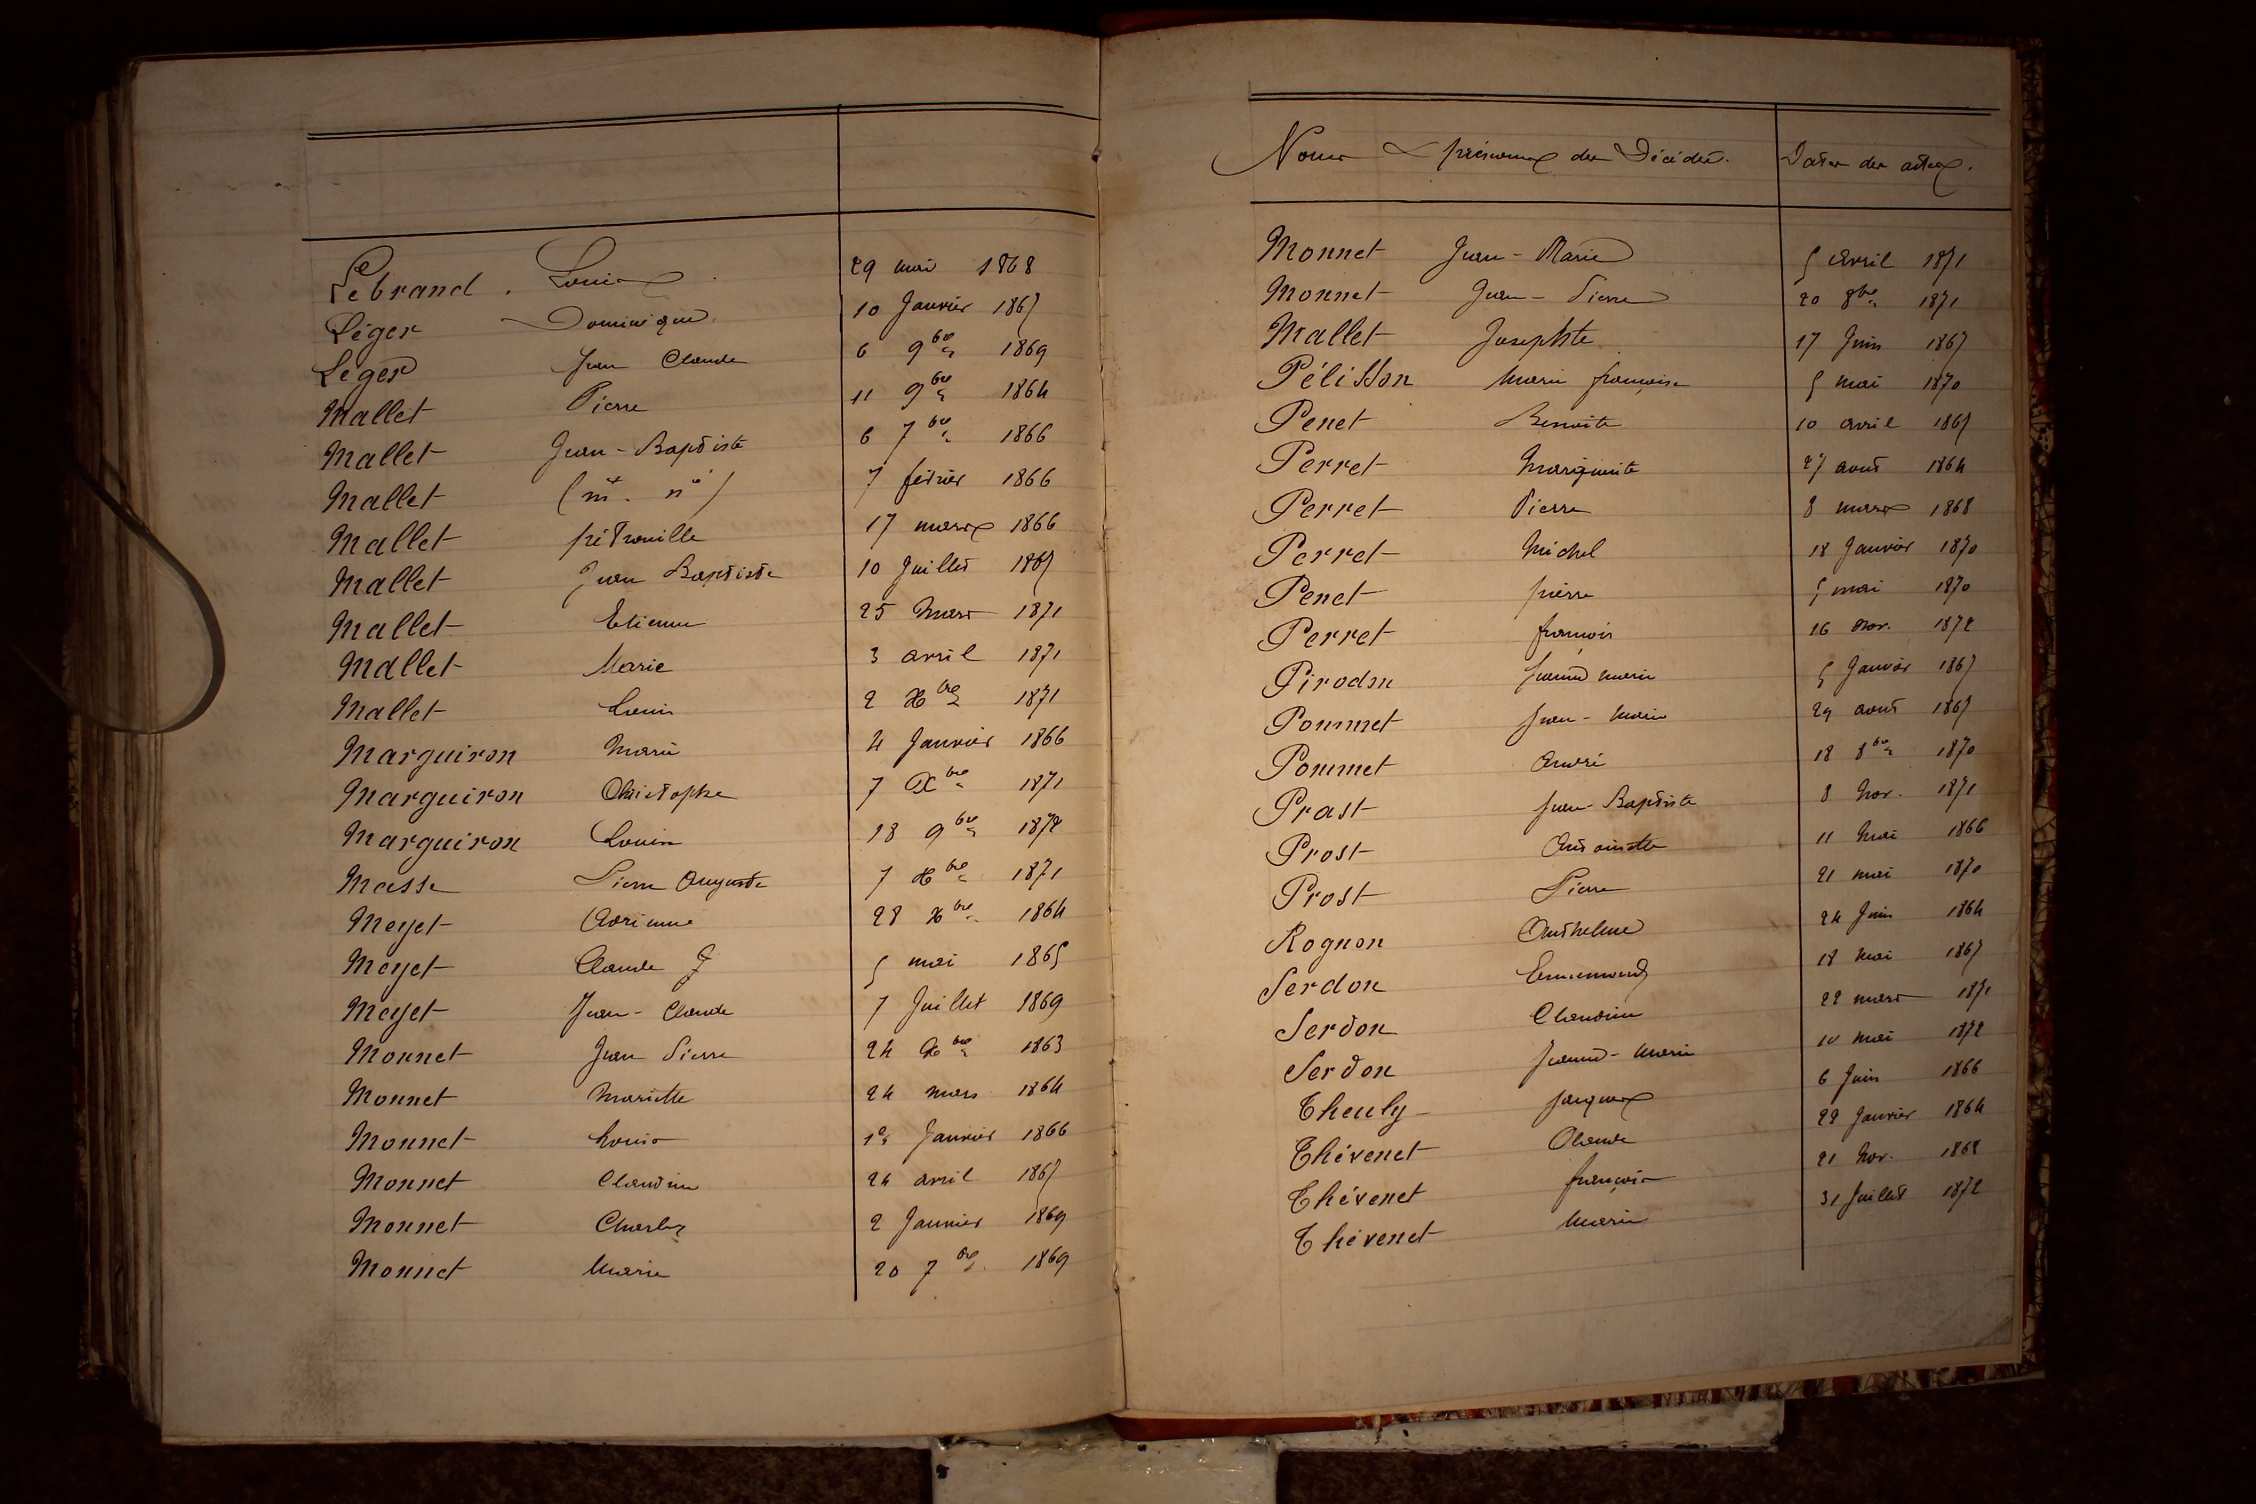 Lebrand. Louis 29 mai 1868
Léger Dominique 10 Janvier 1867
Léger Jean Claude 6 9bre 1869
Mallet Pierre 11 9bre 1864
Mallet Jean-Baptiste 6 7bre 1866
Mallet (mt. né) 7 février 1866
Mallet pétronille 17 mars 1866
Mallet Jean Baptiste 10 Juillet 1867
Mallet Etienne 25 Mars 1871
Mallet Marie 3 avril 1871
Mallet Louis 2 Xbre 1871
Marguiron Marie 4 Janvier 1866
Marguiron Christophe 7 Xbre 1871
Marguiron Louis 18 9bre 1872
Masse Pierre Auguste 7 Xbre 1871
Meyet Adrienne 28 Xbre 1864
Meyet Claude F 5 mai 1865
Meyet Jean-Claude 7 Juillet 1869
Monnet Jean Pierre 24 Xbre 1863
Monnet Mariette 24 mars 1864
Monnet Louis 1er Janvier 1866
Monnet Claudine 24 avril 1867
Monnet Charles 2 Janvier 1869
Monnet Marie 20 7bre 1869
Noms & prénoms des Décédés. Dates des actes.
Monnet Jean-Marie 5 avril 1871
Monnet Jean-Pierre 20 8bre 1871
Mallet Josephte 17 Juin 1867
Pélisson Marie françoise 5 mai 1870
Penet Benoite 10 avril 1867
Perret Marguerite 27 aout 1864
Perret Pierre 8 mars 1868
Perret Michel 18 Janvier 1870
Penet pierre 5 mai 1870
Perret françois 16 nov. 1872
Pirodon Jeanne Marie 5 Janvier 1867
Pommet Jean-Marie 29 aout 1867
Pommet André 18 8bre 1870
Prast Jean-Baptiste 8 Nov. 1871
Prost Antoinette 11 Mai 1866
Prost Pierre 21 mai 1870
Rognon Anthelme 24 Juin 1864
Serdon Ennemond 18 Mai 1867
Serdon Claudine 22 mars 1871
Serdon Jeanne-Marie 10 mai 1872
Theuly Jacques 6 Juin 1866
Thévenet Claude 22 Janvier 1864
Thévenet françois 21 Nov. 1868
Thévenet Marie 31 Juillet 1872